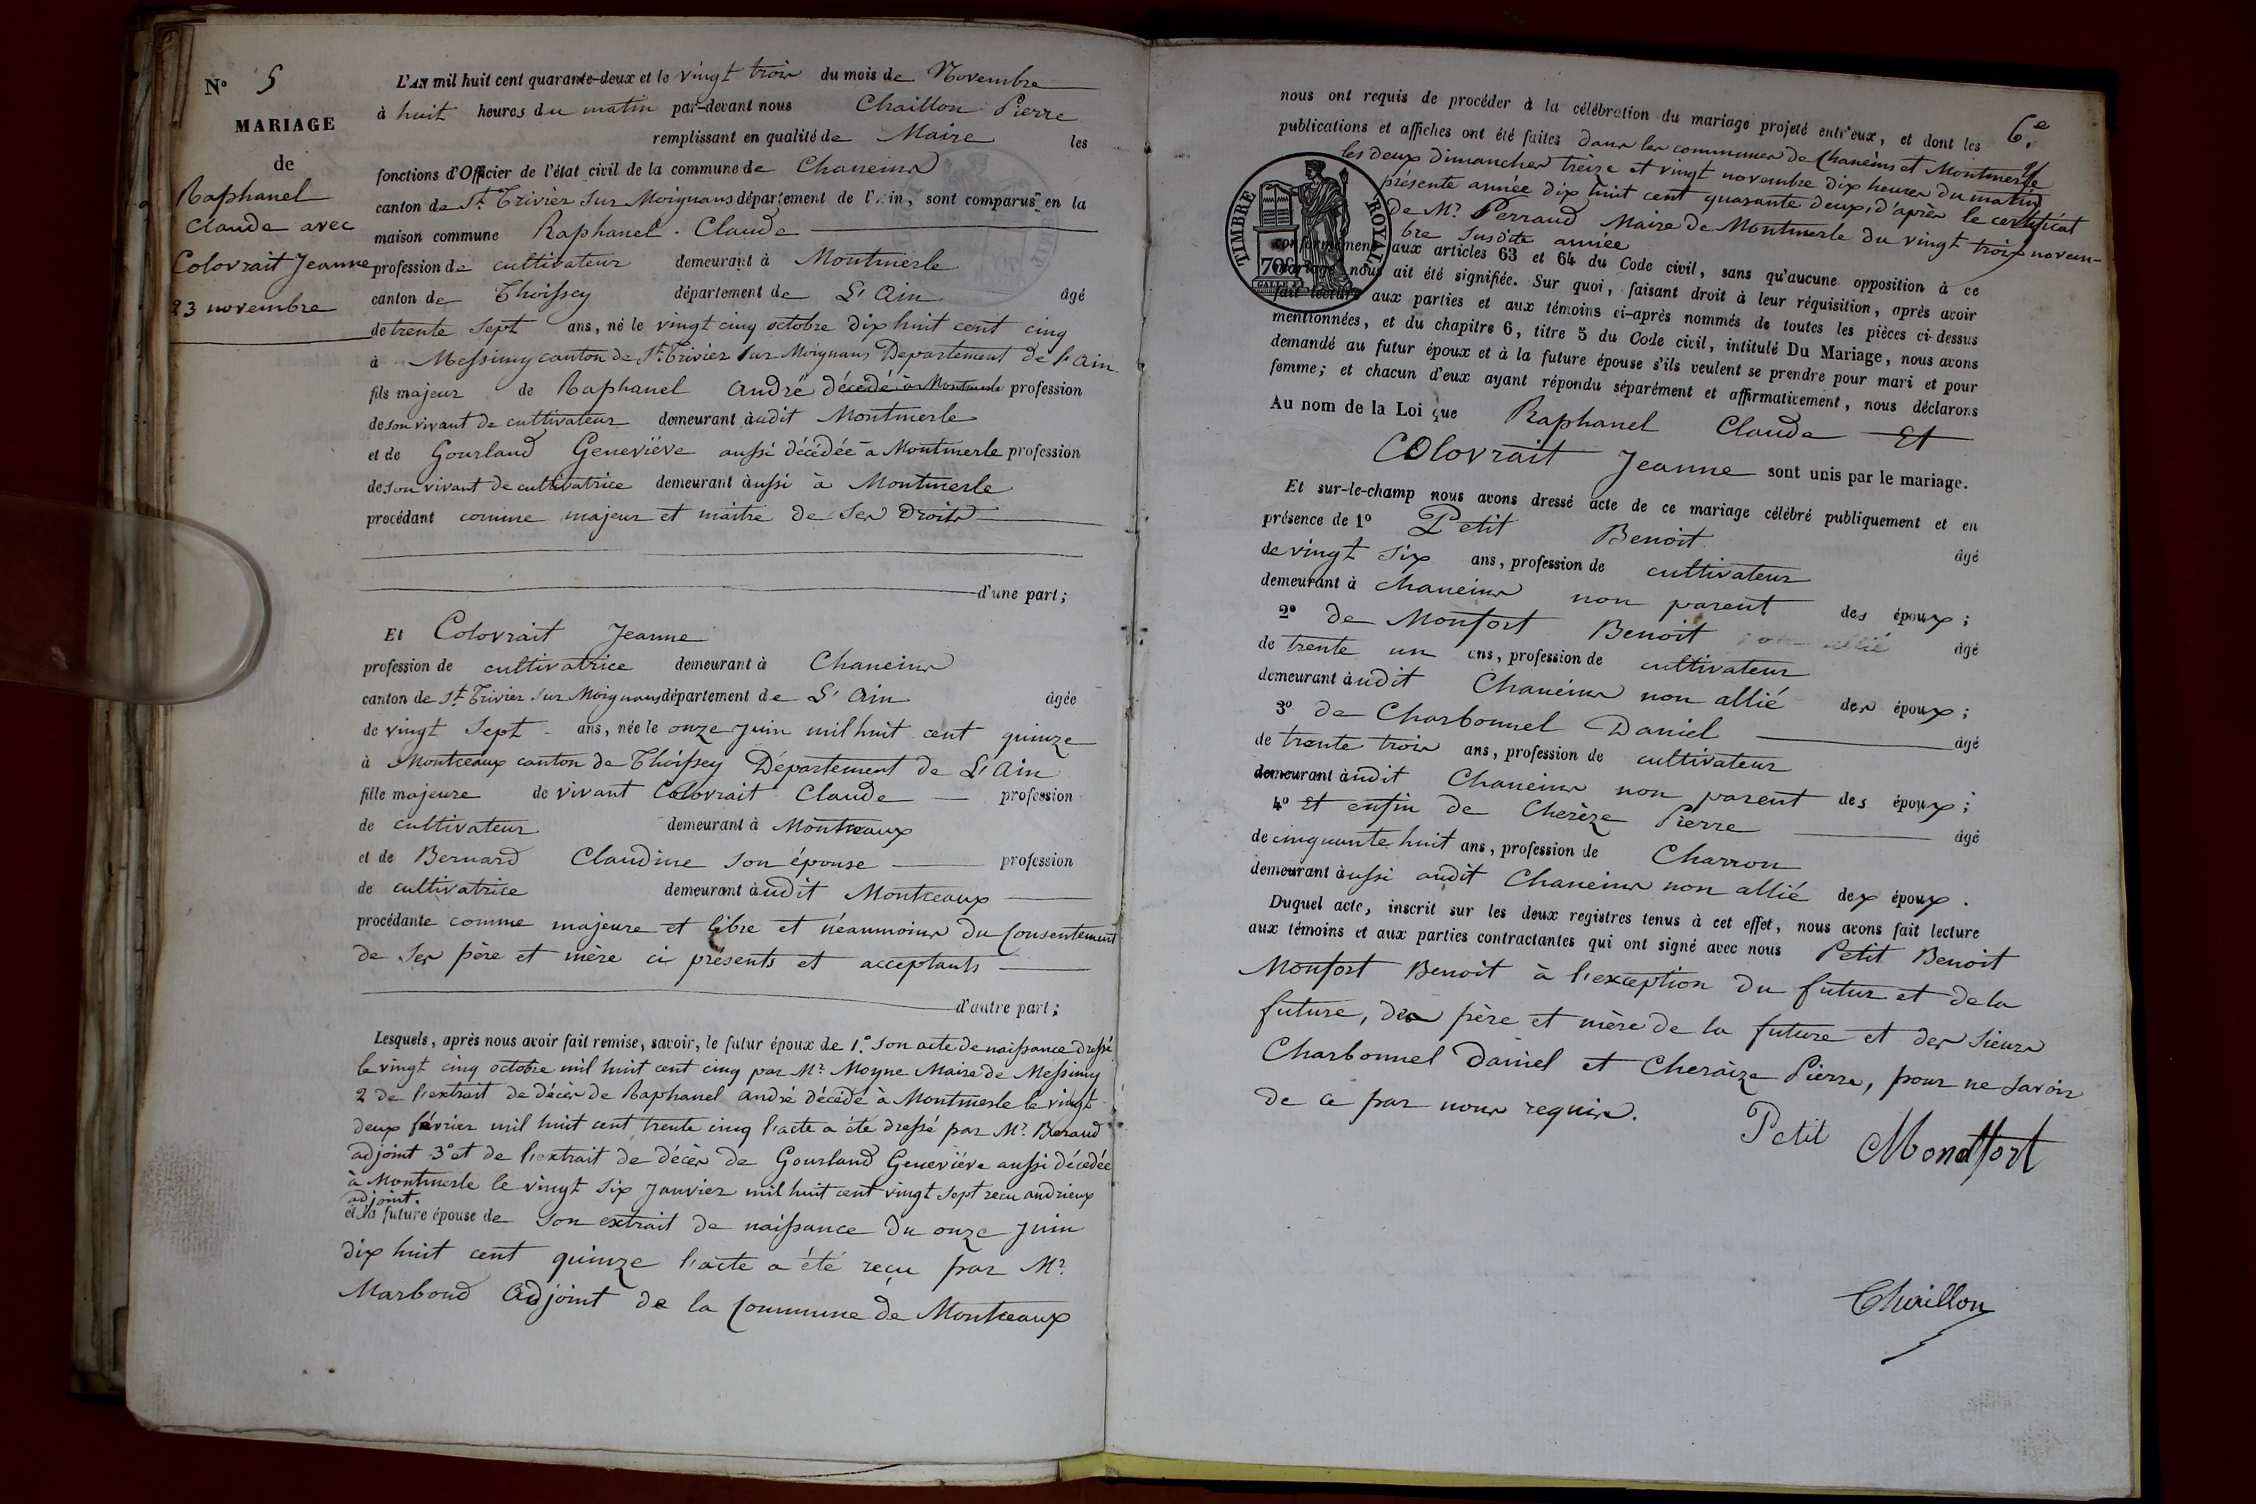 N° 5
MARIAGE
de
Raphanel
Claude avec
Colovrait Jeanne
23 novembre
L'AN mil huit cent quarante-deux et le vingt trois du mois de Novembre
à huit heures du matin par-devant nous Chaillon Pierre
remplissant en qualité de Maire les
fonctions d'Officier de l'état civil de la commune de Chaneins
canton de St. Trivier sur Moignans département de l'Ain, sont comparus en la
maison commune Raphanel Claude
profession de cultivateur demeurant à Montmerle
canton de Thoissey département de L'Ain âgé
de trente sept ans, né le vingt cinq octobre dix huit cent cinq
à Messimy canton de St. Trivier sur Moignans Département de l'Ain
fils majeur de Raphanel André décédé à Montmerle profession
de son vivant de cultivateur demeurant audit Montmerle
et de Gourland Geneviève aussi décédée à Montmerle profession
de son vivant de cultivatrice demeurant aussi à Montmerle
procédant comme majeur et maitre de ses Droits
d'une part;
Et Colovrait Jeanne
profession de cultivatrice demeurant à Chaneins
canton de St. Trivier sur Moignans département de L'Ain âgée
de vingt sept ans, née le onze juin mil huit cent quinze
à Montceaux canton de Thoissey Département de L'Ain
fille majeure de vivant Colovrait Claude profession
de cultivateur demeurant à Montceaux
et de Bernard Claudine son épouse profession
de cultivatrice demeurant audit Montceaux
procédante comme majeure et libre et néanmoins du consentement
de ses père et mère ci présents et acceptants
d'autre part;
Lesquels, après nous avoir fait remise, savoir, le futur époux de 1.° son acte de naissance dressé
le vingt cinq octobre mil huit cent cinq par Mr. Moyne Maire de Messimy
2 de l'extrait de décès de Raphanel André décédé à Montmerle le vingt
deux février mil huit cent trente cinq l'acte a été dressé par Mr. Beraud
adjoint 3° et de l'extrait de décès de Gourland Geneviève aussi décédée
à Montmerle le vingt six janvier mil huit cent vingt sept recu andrieux
adjoint.
et la future épouse de son extrait de naissance du onze juin
dix huit cent quinze l'acte a été reçu par Mr.
Marboud Adjoint de la Commune de Montceaux
6.e
nous ont requis de procéder à la célébration du mariage projeté entr'eux, et dont les
publications et affiches ont été faites dans les communes de Chaneins et Montmerle
les deux dimanches treize et vingt novembre dix heures du matin
présente année dix huit cent quarante deux, d'après le certificat
de Mr. Perraud Maire de Montmerle du vingt trois novem-
bre susdite année
TIMBRE ROYAL
70c
conformément aux articles 63 et 64 du Code civil, sans qu'aucune opposition à ce
mariage nous ait été signifiée. Sur quoi, faisant droit à leur réquisition, après avoir
fait lecture aux parties et aux témoins ci-après nommés de toutes les pièces ci-dessus
mentionnées, et du chapitre 6, titre 5 du Code civil, intitulé Du Mariage, nous avons
demandé au futur époux et à la future épouse s'ils veulent se prendre pour mari et pour
femme; et chacun d'eux ayant répondu séparément et affirmativement, nous déclarons
Au nom de la Loi que Raphanel Claude Et
Colovrait Jeanne sont unis par le mariage.
Et sur-le-champ nous avons dressé acte de ce mariage célébré publiquement et en
présence de 1° Petit Benoit âgé
de vingt six ans, profession de cultivateur
demeurant à chaneins non parent des époux;
2° de Monfort Benoit âgé
de trente un ans, profession de cultivateur
demeurant audit Chaneins non allié des époux;
3° de Charbonnel Daniel âgé
de trente trois ans, profession de cultivateur
demeurant audit Chaneins non parent des époux;
4° Et enfin de Cherèze Pierre âgé
de cinquante huit ans, profession de Charron
demeurant aussi audit Chaneins non allié des époux.
Duquel acte, inscrit sur les deux registres tenus à cet effet, nous avons fait lecture
aux témoins et aux parties contractantes qui ont signé avec nous Petit Benoit
Monfort Benoit à l'exception du futur et de la
future, des père et mère de la future et des sieurs
Charbonnel Daniel et Cheraize Pierre, pour ne savoir
de ce par nous requis.
Petit Montfort
Chaillon